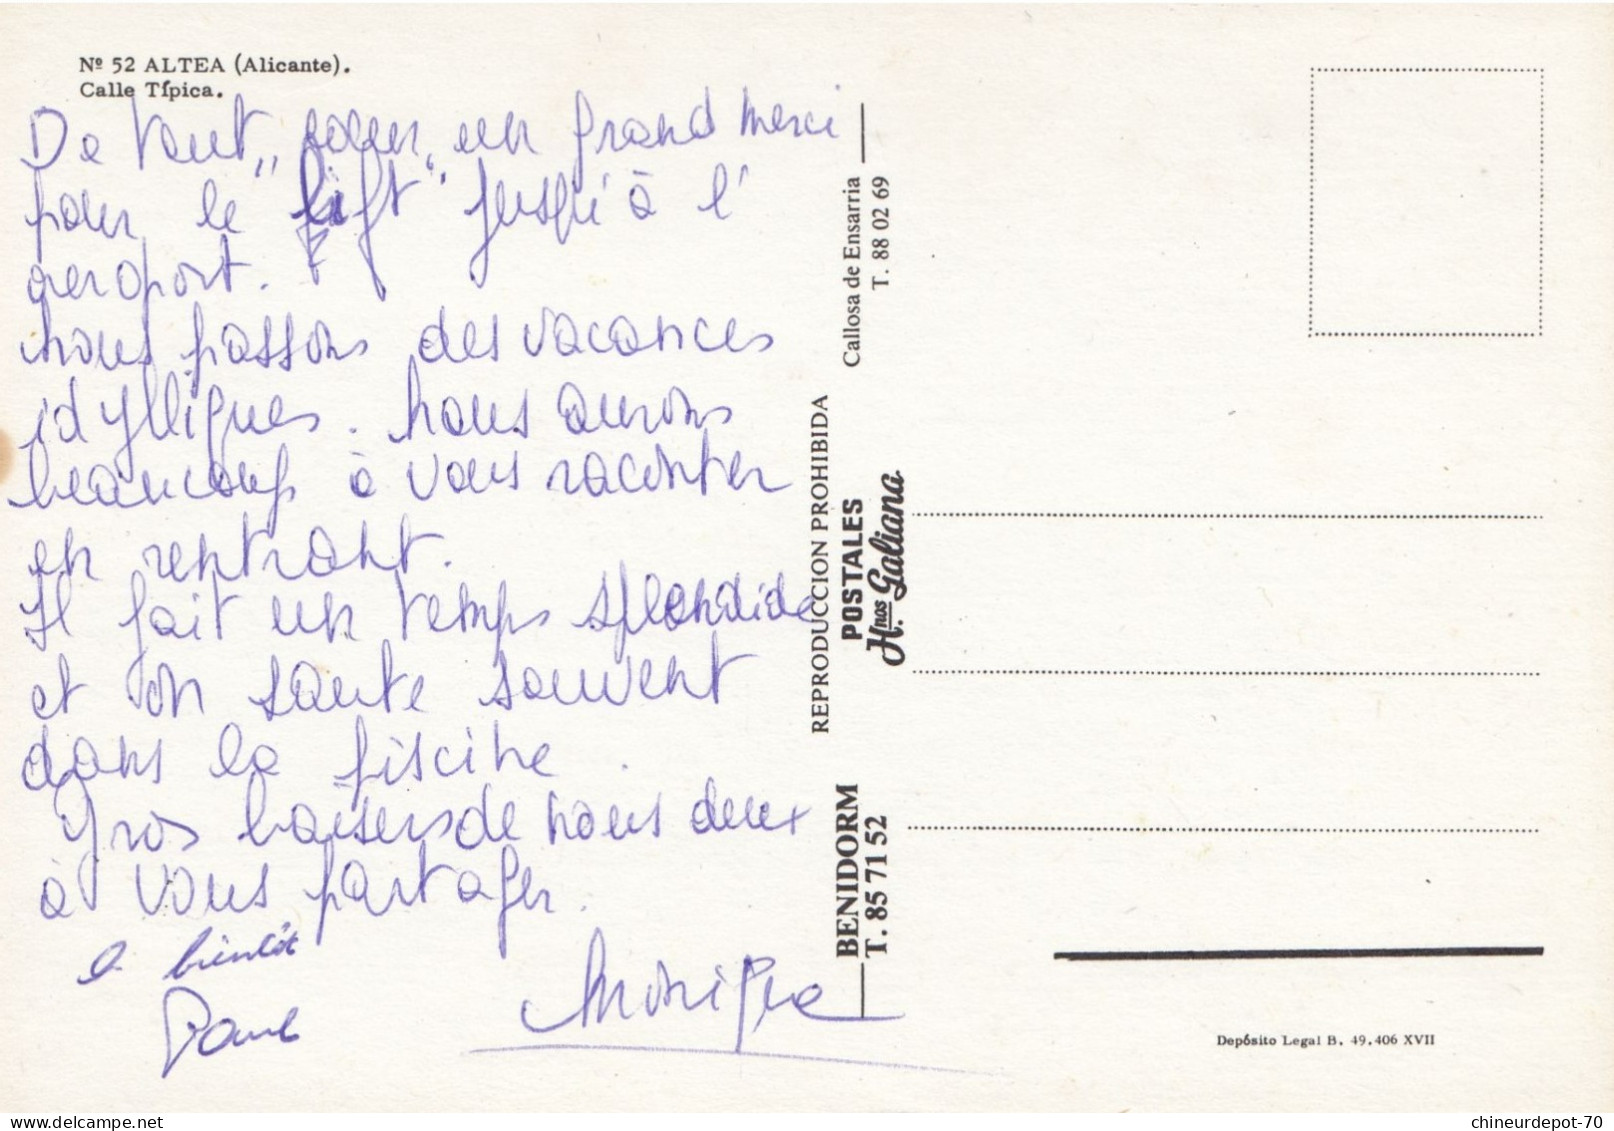 Nº 52 ALTEA (Alicante).
Calle Típica.
De tout coeur, un grand merci
pour le "lift" jusqu'à l'
aeroport.
nous passons des vacances
idylliques. nous aurons
beaucoup à vous raconter
en rentrant.
Il fait un temps splendide
et on saute souvent
dans la piscine.
Gros baisers de nous deux
à vous partager.
à bientôt
Paul
Monique
Callosa de Ensarria
T. 88 02 69
REPRODUCCION PROHIBIDA
POSTALES
Hnos. Galiana
BENIDORM
T. 85 71 52
Depósito Legal B. 49.406 XVII
chineurdepot-70